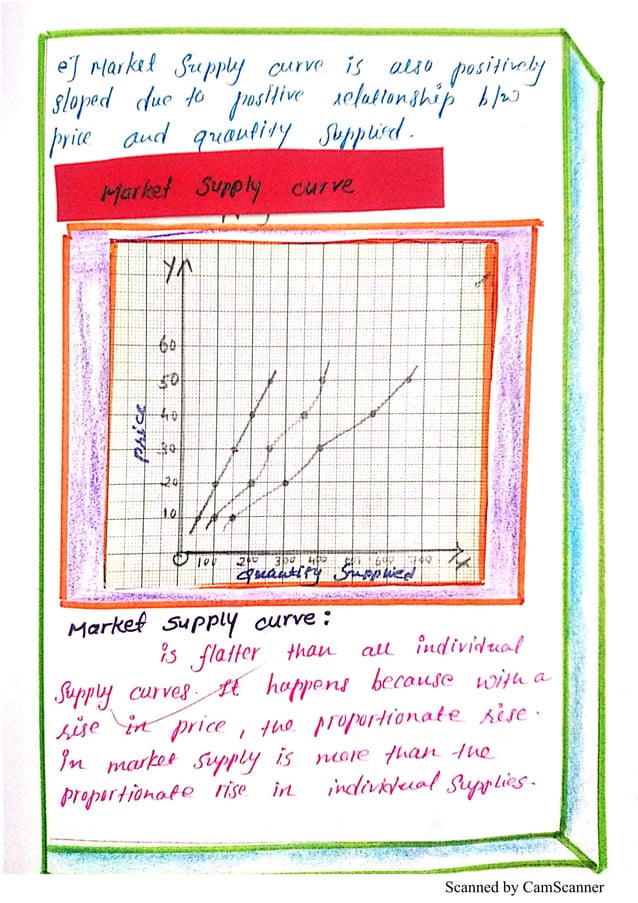 e] Market Supply curve is also positively
sloped due to positive relationship b/w
price and quantity supplied.
Market Supply curve
Y
60
50
40
30
20
10
Price
O 100 200 300 400 500 600 700 X
Quantity Supplied
Market supply curve:
is flatter than all individual
Supply curves. It happens because with a
rise in price, the proportionate rise.
In market supply is more than the
proportionate rise in individual Supplies.
Scanned by CamScanner